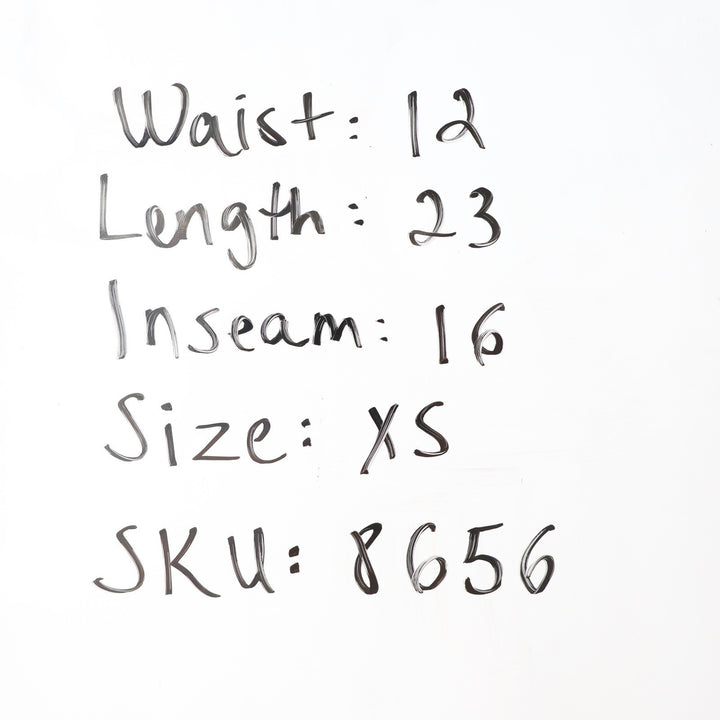 Waist: 12
Length: 23
Inseam: 16
Size: XS
SKU: 8656